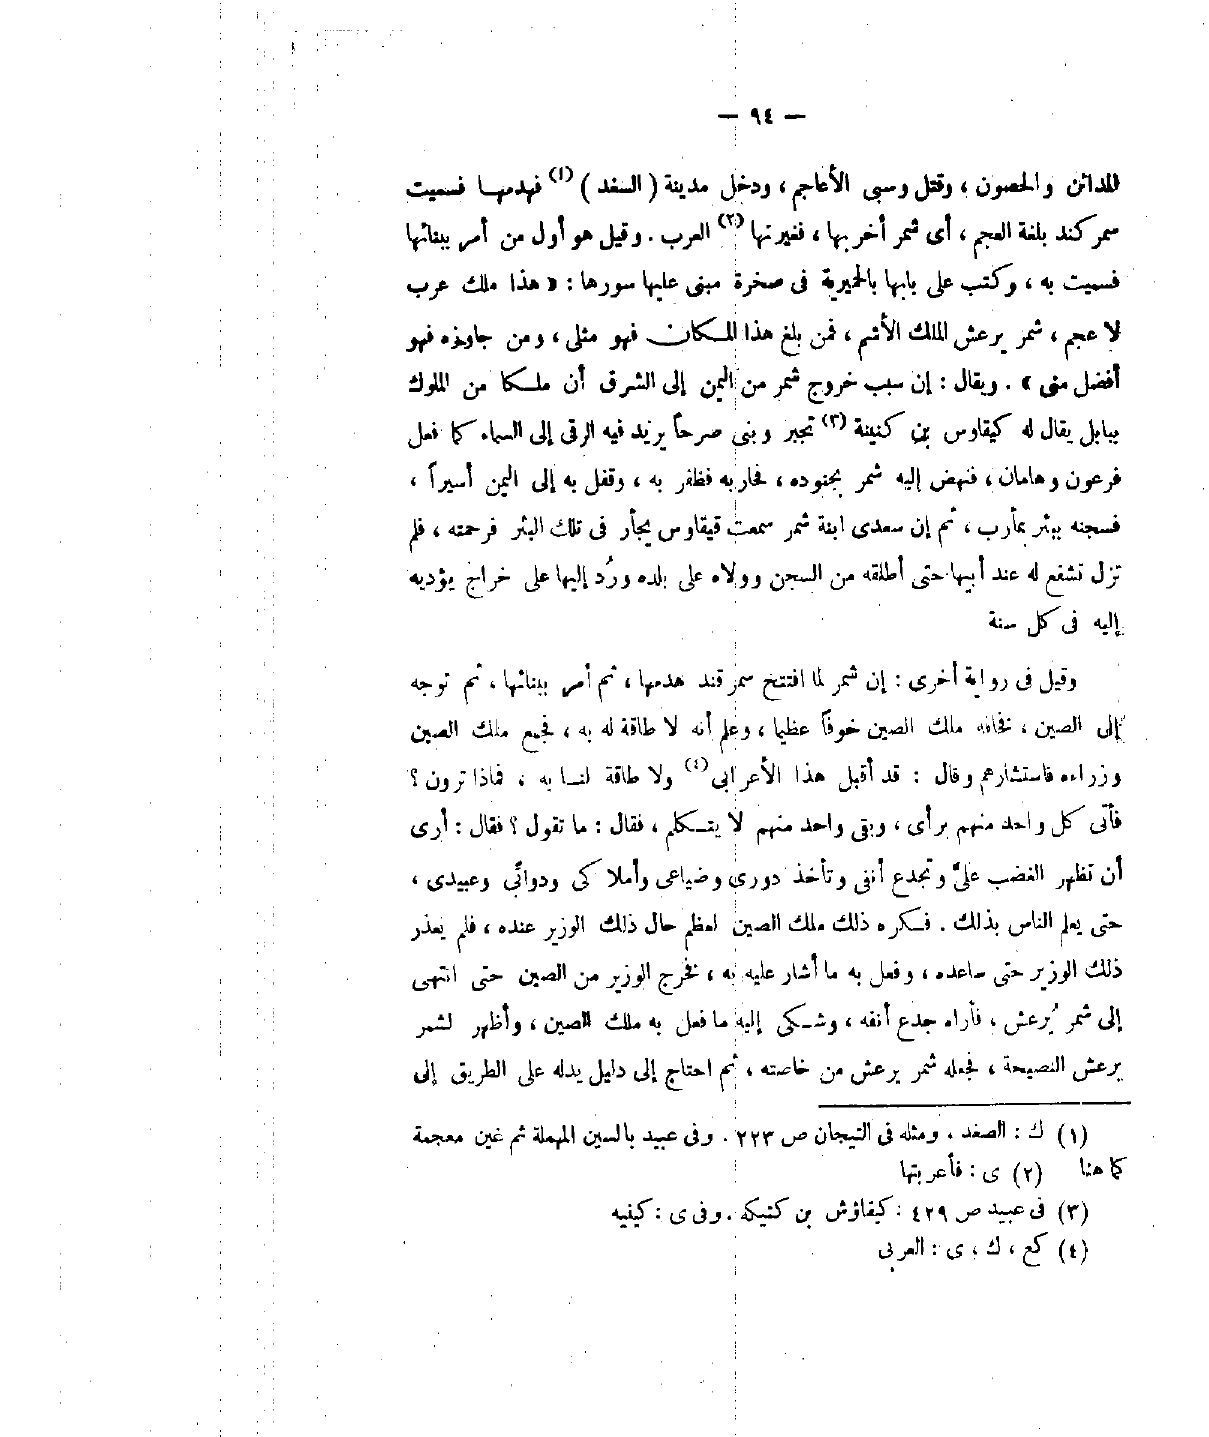 — ٩٤ —
المدائن والحصون ، وقتل وسبى الأعاجم ، ودخل مدينة ( السغد ) (١) فهدمها فسميت
سمركند بلغة العجم ، أى شمر أخربها ، فغيرتها (٢) العرب . وقيل هو أول من أمر ببنائها
فسميت به ، وكتب على بابها بالحميرية فى صخرة مبنى عليها سورها : « هذا ملك عرب
لا عجم ، شمر يرعش الملك الأشم ، فمن بلغ هذا المكان فهو مثلى ، ومن جاوزه فهو
أفضل منى » . ويقال : إن سبب خروج شمر من اليمن إلى الشرق أن ملكا من الملوك
ببابل يقال له كيقاوس بن كنينة (٣) تجبر وبنى صرحاً يريد فيه الرقى إلى السماء كما فعل
فرعون وهامان ، فنهض إليه شمر بجنوده ، فحاربه فظفر به ، وقفل به إلى اليمن أسيراً ،
فسجنه ببئر بمأرب ، ثم إن سعدى ابنة شمر سمعت قيقاوس يجأر فى تلك البئر فرحمته ، فلم
تزل تشفع له عند أبيها حتى أطلقه من السجن وولاه على بلده ورُد إليها على خراج يؤديه
إليه فى كل سنة
وقيل فى رواية أخرى : إن شمر لما افتتح سمرقند هدمها ، ثم أمر ببنائها ، ثم توجه
إلى الصين ، فخافه ملك الصين خوفاً عظيما ، وعلم أنه لا طاقة له به ، فجمع ملك الصين
وزراءه فاستشارهم وقال : قد أقبل هذا الأعرابى (٤) ولا طاقة لنا به ، فماذا ترون ؟
فأتى كل واحد منهم برأى ، وبقى واحد منهم لا يتكلم ، فقال : ما تقول ؟ فقال : أرى
أن تظهر الغضب علىَّ وتجدع أنفى وتأخذ دورى وضياعى وأملاكى ودوابّى وعبيدى ،
حتى يعلم الناس بذلك . فكره ذلك ملك الصين لعظم حال ذلك الوزير عنده ، فلم يعذر
ذلك الوزير حتى ساعده ، وفعل به ما أشار عليه به ، فخرج الوزير من الصين حتى انتهى
إلى شمر يُرعش ، فأراه جدع أنفه ، وشكى إليه ما فعل به ملك الصين ، وأظهر لشمر
يرعش النصيحة ، فجعله شمر يرعش من خاصته ، ثم احتاج إلى دليل يدله على الطريق إلى
(١) ك : الصغد ، ومثله فى التيجان ص ٢٢٣ . وفى عبيد بالسين المهملة ثم غين معجمة
كما هنا (٢) ى : فأعربتها
(٣) فى عبيد ص ٤٢٩ : كيقاؤش بن كنيكه . وفى ى : كينيه
(٤) كع ، ك ، ى : العربى